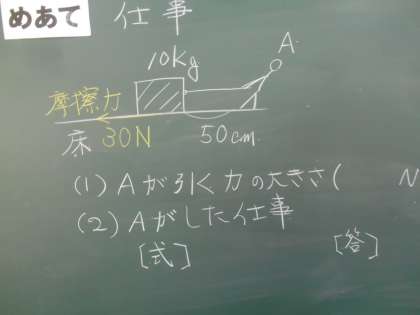 めあて 仕事
A
10kg
摩擦力
床 30N 50cm
(1) Aが引く力の大きさ( N
(2) Aがした仕事
[式] [答]